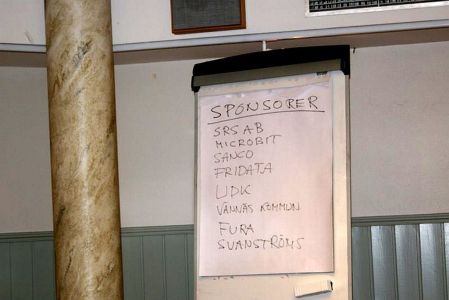 SPONSORER
SRS AB
MICROBIT
SANCO
FRIDATA
UDK
VÄNNÄS KOMMUN
FURA
SVANSTRÖMS